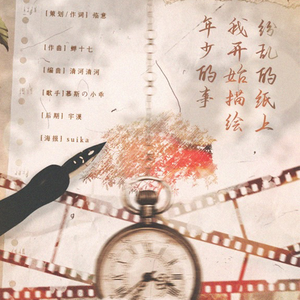 [策划/作词] 临意
[作曲] 蝉十七
[编曲] 清河清河
[歌手] 慕斯の小乖
[后期] 宇渼
[海报] suika
纷乱的纸上
我开始描绘
年少的事